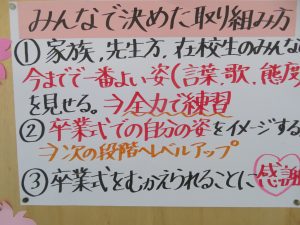 みんなで決めた取り組み方
① 家族、先生方、在校生のみんな
今までで一番よい姿(言葉、歌、態度
を見せる。⇒全力で練習
② 卒業式での自分の姿をイメージする
⇒次の段階へレベルアップ
③ 卒業式をむかえられることに感謝